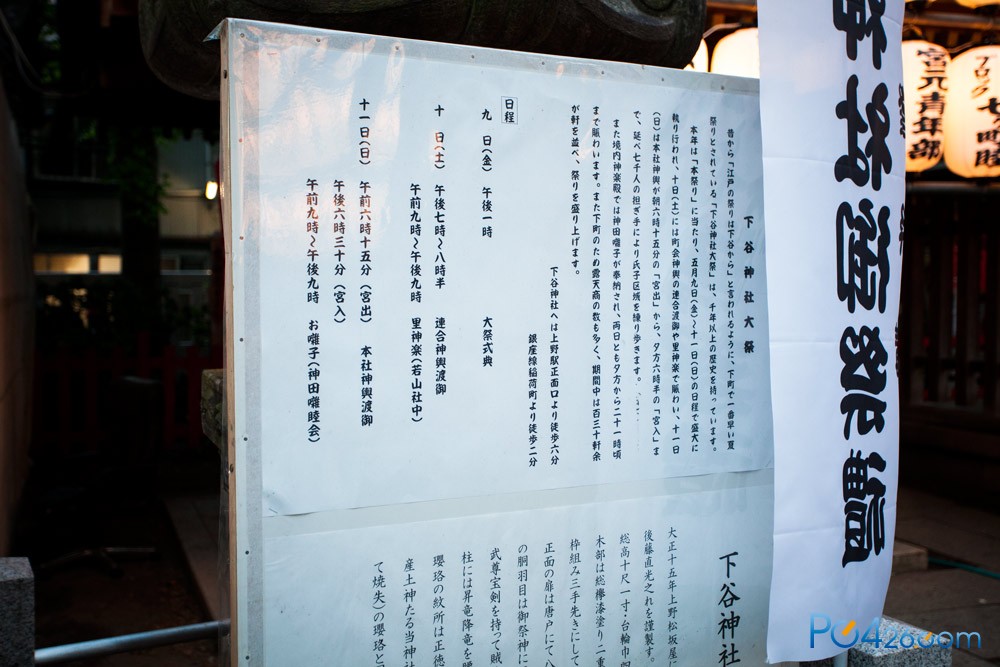 下谷神社大祭
昔から「江戸の祭りは下谷から」と言われるように、下町で一番早い夏
祭りとされている「下谷神社大祭」は、千年以上の歴史を持っています。
本年は「本祭り」に当たり、五月九日(金)〜十一日(日)の日程で盛大に
執り行われ、十日(土)には町会神輿の連合渡御や里神楽で賑わい、十一日
(日)は本社神輿が朝六時十五分の「宮出」から、夕方六時半の「宮入」ま
で、延べ七千人の担ぎ手により氏子区域を練り歩きます。
また境内神楽殿では神田囃子が奉納され、両日とも夕方から二十一時頃
まで賑わいます。また下町のため露天商の数も多く、期間中は百三十軒余
が軒を並べ、祭りを盛り上げます。
下谷神社へは上野駅正面口より徒歩六分
銀座線稲荷町より徒歩二分
日程
九 日(金) 午後一時 大祭式典
十 日(土) 午後七時〜八時半 連合神輿渡御
午前九時〜午後九時 里神楽(若山社中)
十一日(日) 午前六時十五分(宮出) 本社神輿渡御
午後六時三十分(宮入)
午前九時〜午後九時 お囃子(神田囃睦会)
下谷神社
大正十五年上野松坂屋に
後藤直光之れを謹製す。
総高十尺一寸・台輪巾四
木部は総欅漆塗り二重
枠組み三手先きにして
正面の扉は唐戸にて八
の胴羽目は御祭神に
武尊宝剣を持って賊
柱には昇竜降竜を
瓔珞の紋所は正徳
産土神たる当神社
て焼失)の瓔珞と
宮元青年部
七ヶ町睦
PC426.com